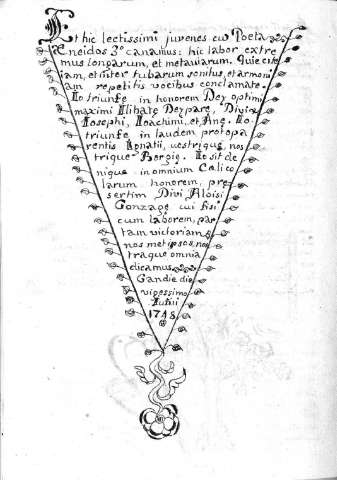 Et hic lectissimi juvenes cū Poeta
Æneidos 3º canamus: hic labor extre
mus longarum, et metaviarum. Quie scite
iam, et inter tubarum sonitus, et armoni
am repetitis vocibus conclamate.
Io triunfe in honorem Dey optimi
maximi Illibate Deypare, Divin
Iosephi, Ioachimi, et, Ang. Io
triunfe in laudem protopa
rentis Ignatii, vestrique, nos
trique Borgie. Io sit de
nique in omnium Calico
larum honorem, pre
sertim Divi Aloisi
Gonzage cui fisi
cum laborem, par
tam victoriam
nos metipsos, nos
traque omnia
dicamus
Gandie die
vigessimo
Iulii
1748